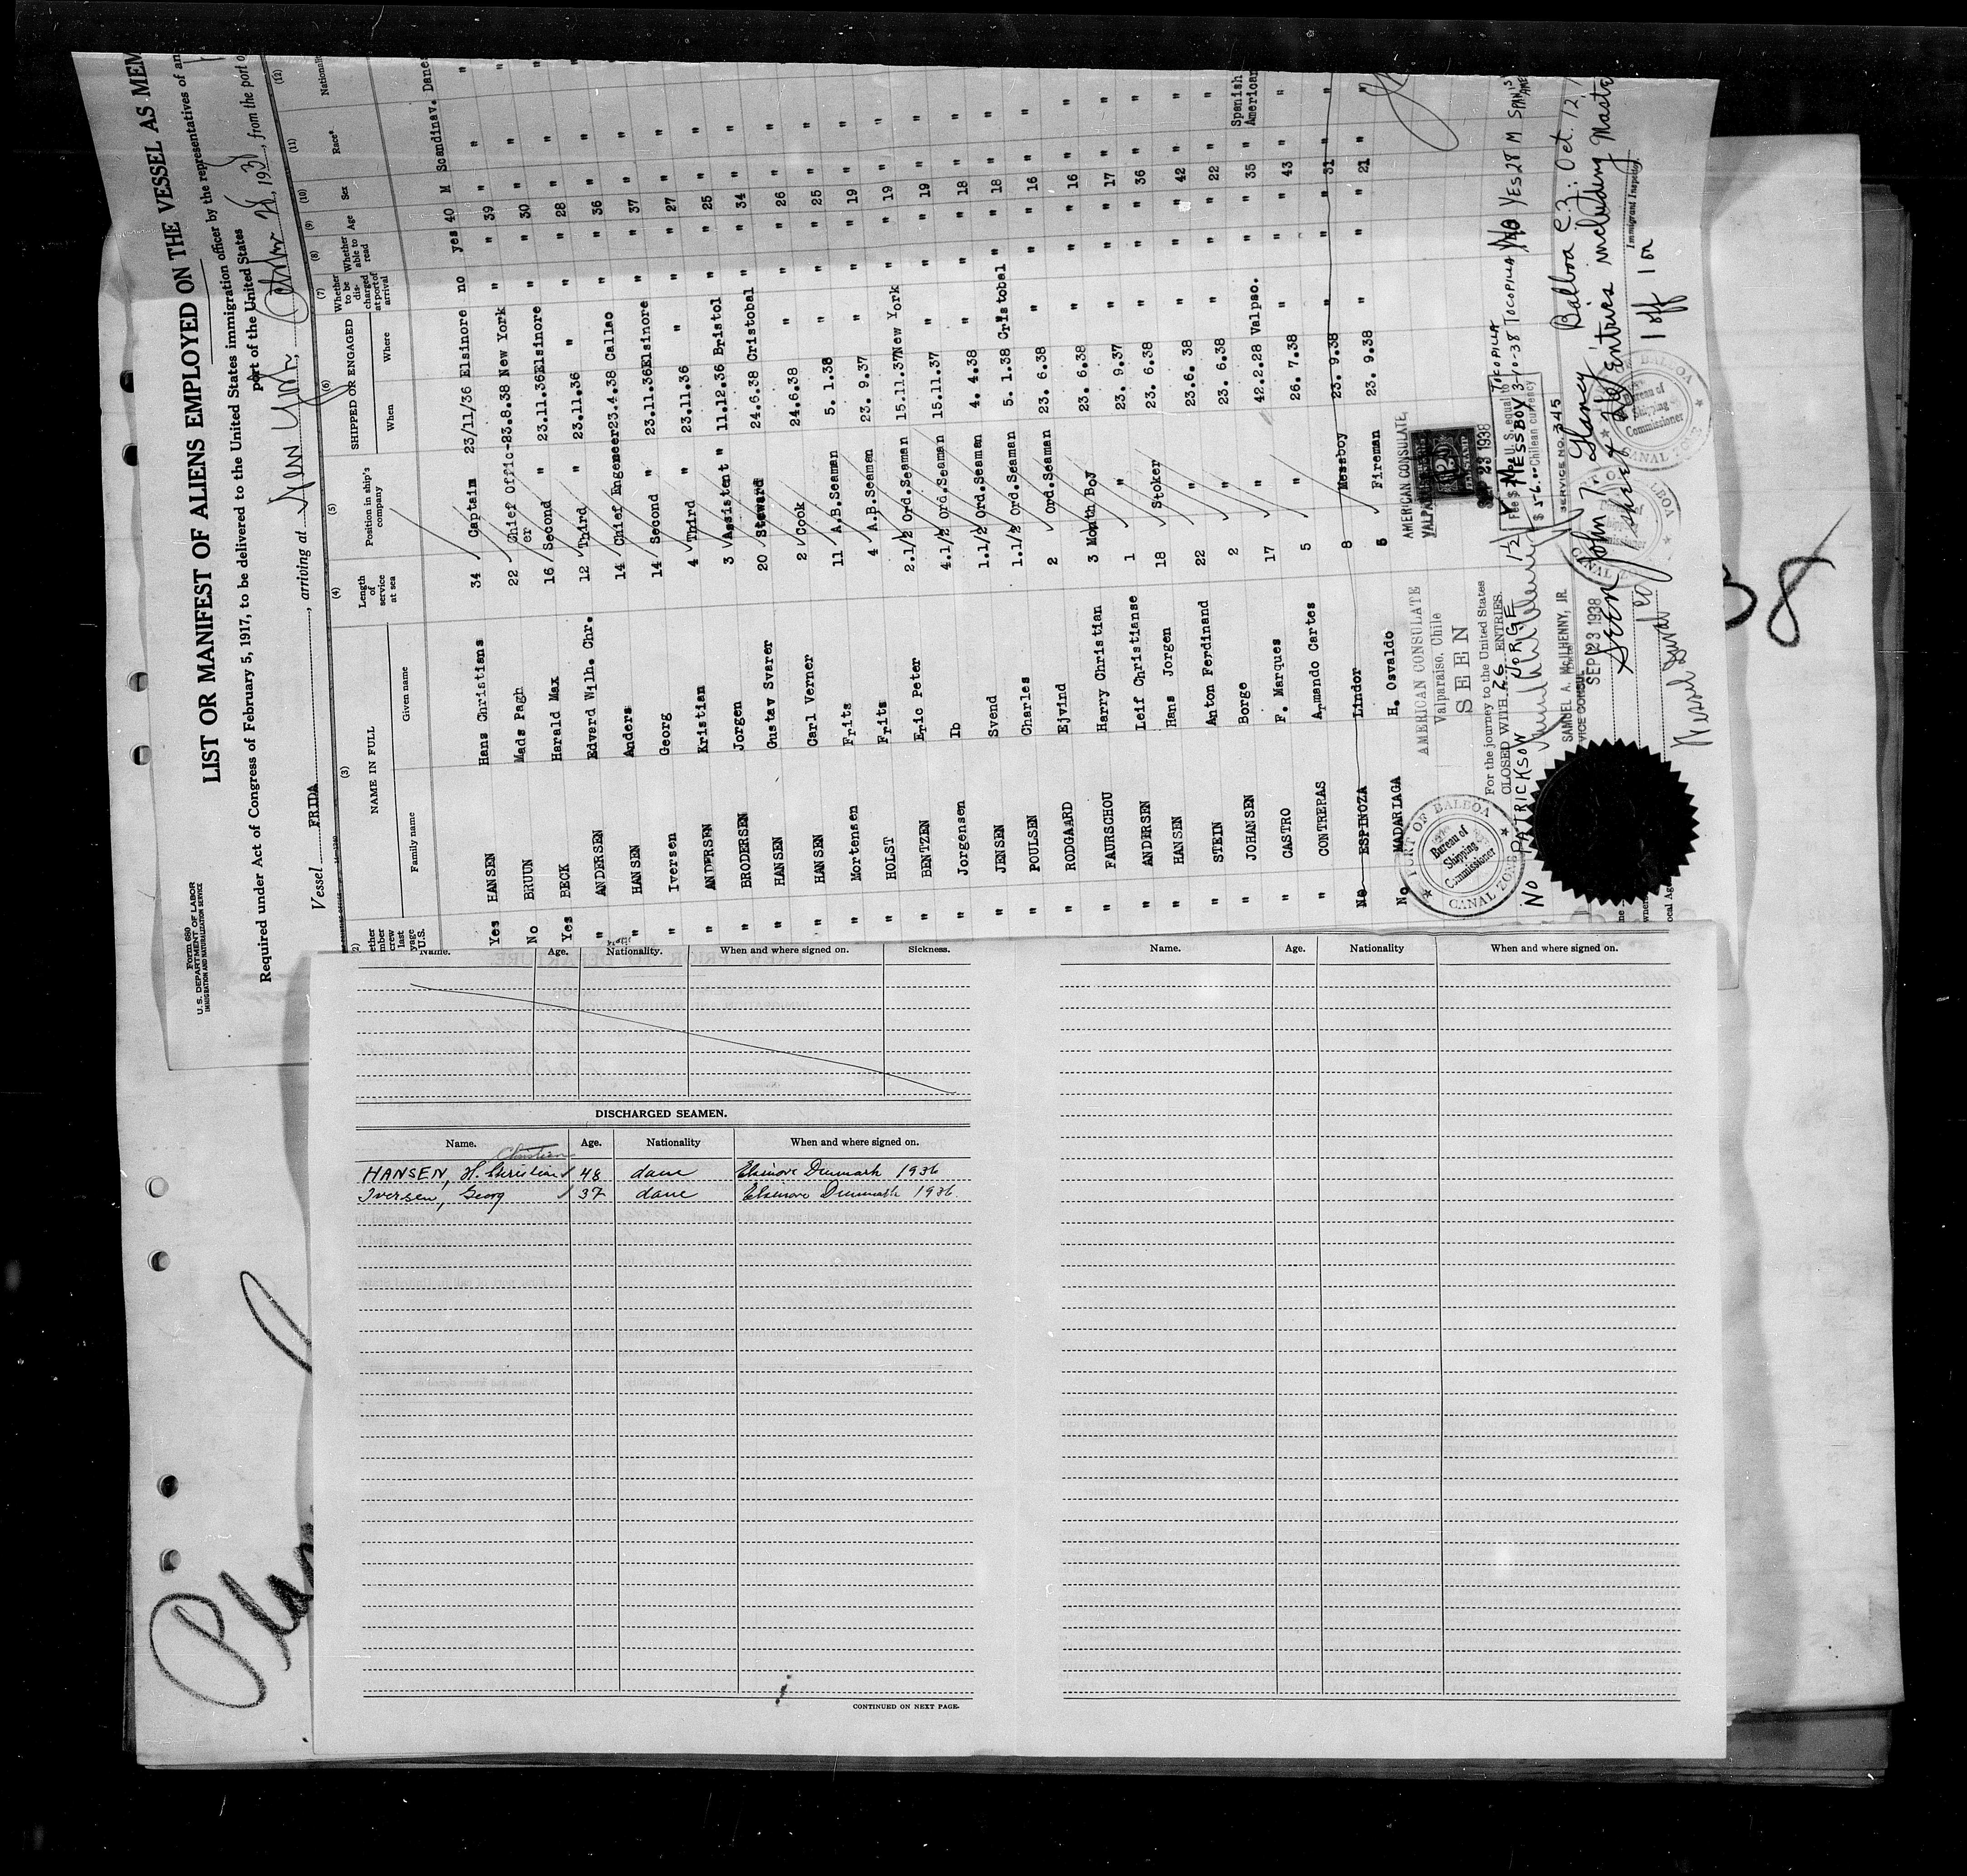 Form 680
U. S. DEPARTMENT OF LABOR
IMMIGRATION AND NATURALIZATION SERVICE
LIST OR MANIFEST OF ALIENS EMPLOYED ON THE VESSEL AS MEM
Required under Act of Congress of February 5, 1917, to be delivered to the United States immigration officer by the representatives of an
port of the United States
Vessel FRIDA, arriving at New York, 193 , from the port o
(3) (4) (5) (6) (7) (8) (9) (10) (11) (12)
NAME IN FULL
Family name Given name
Length of service at sea
Position in ship's company
SHIPPED OR ENGAGED
When Where
Whether to be discharged at port of arrival
Whether able to read
Age Sex Race* Nationali
Yes HANSEN Hans Christians 34 Captain 23/11/36 Elsinore no yes 40 M Scandinav. Danes
No BRUUN Mads Pagh 22 Chief Offic-er 23.8.38 New York " " 39 " " "
Yes BECK Harald Max 16 Second " 23.11.36 Elsinore " " 30 " " "
" ANDERSEN Edvard Wilh. Chr. 12 Third " 23.11.36 " " " 28 " " "
" HANSEN Anders 14 Chief Engeneer 23.4.38 Callao " " 36 " " "
" Iversen Georg 14 Second " 23.11.36 Elsinore " " 37 " " "
" ANDERSEN Kristian 4 Third " 23.11.36 " " " 27 " " "
" BRODERSEN Jorgen 3 Assistent " 11.12.36 Bristol " " 25 " " "
" HANSEN Gustav Svarer 20 Steward 24.6.38 Cristobal " " 34 " " "
" HANSEN Carl Verner 2 Cook 24.6.38 " " " 26 " " "
" Mortensen Frits 11 A.B.Seaman 5. 1.38 " " " 25 " " "
" HOLST Frits 4 A.B.Seaman 23. 9.37 " " " 19 " " "
" BENTZEN Eric Peter 2.1/2 Ord.Seaman 15.11.37 New York " " 19 " " "
" Jorgensen Ib 4.1/2 Ord.Seaman 15.11.37 " " " 19 " " "
" JENSEN Svend 1.1/2 Ord.Seaman 4. 4.38 " " " 18 " " "
" POULSEN Charles 1.1/2 Ord.Seaman 5. 1.38 Cristobal " " 18 " " "
" RODGAARD Ejvind 2 Ord.Seaman 23. 6.38 " " " 16 " " "
" FAURSCHOU Harry Christian 3 Month Boy 23. 6.38 " " " 16 " " "
" ANDERSEN Leif Christianse 1 " 23. 9.37 " " " 17 " " "
" HANSEN Hans Jorgen 18 Stoker 23. 6.38 " " " 36 " " "
" STEIN Anton Ferdinand 22 " 23.6. 38 " " " 42 " " "
" JOHANSEN Borge 2 " 23. 6.38 " " " 22 " " "
" CASTRO F. Marques 17 " 42.2.28 Valpso. " " 35 " Spanish American
" CONTRERAS Armando Cartes 5 " 26. 7.38 " " " 43 " " "
No ESPINOZA Lindor 8 Messboy 23. 9.38 " " " 31 " " "
No MADARIAGA H. Osvaldo 5 Fireman 23. 9.38 " " " 21 " " "
AMERICAN CONSULATE
Valparaiso, Chile
SEEN
For the journey to the United States
CLOSED WITH 26 ENTRIES.
No PATRICKSON JORGE 12 MESSBOY 3-10-38 TOCOPILLA No YES 28 M SPANISH AMER
SAMUEL A. McILHENNY, JR.
VICE CONSUL
SEP 23 1938
AMERICAN CONSULATE,
SEP 23 1938
SERVICE NO. 345
Seen John T. Balboa C.Z. Oct. 12,
entries including Master
1 off 1 on
Immigrant Inspector
PORT OF BALBOA
Bureau of Shipping Commissioner
CANAL ZONE
38
Name. Age. Nationality. When and where signed on. Sickness.
DISCHARGED SEAMEN.
Name. Age. Nationality When and where signed on.
Christian
HANSEN, H. Christian 48 dane Elsinore Denmark 1936
Iversen, Georg 37 dane Elsinore Denmark 1936
CONTINUED ON NEXT PAGE.
Name. Age. Nationality When and where signed on.